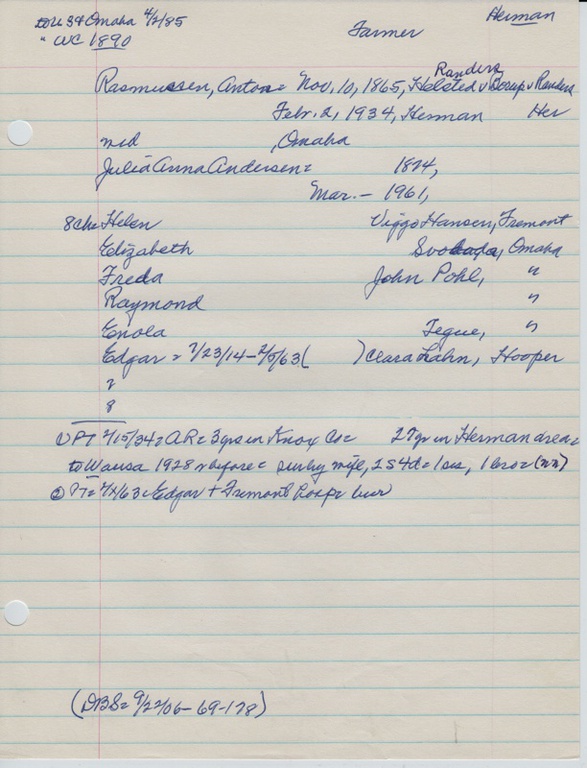 to US & Omaha 4/2/85 Herman
" WC 1890 Farmer
Randers
Rasmussen, Anton = Nov. 10, 1865, Helsted v Randers
Febr. 2, 1934, Herman Her
md , Omaha
Julia Anna Andersen = 1874,
Mar. – 1961,
8 ch = Helen Viggo Hansen, Fremont
Elizabeth Svoboda, Omaha
Freda John Pohl, "
Raymond "
Enola Tegue, "
Edgar = 7/23/14 – 2/5/63 ( ) Clara Lahn, Hooper
7
8
① PT 2/15/34 = AR = 3 yrs in Knox Co = 27 yr in Herman area =
to Wausa 1928 n before = surv by wife, 2 S 4 d = 1 sis, 1 bro = (nn)
② PT = 63 = Edgar + Fremont bur
(DBS = 9/22/06 – 69-178)